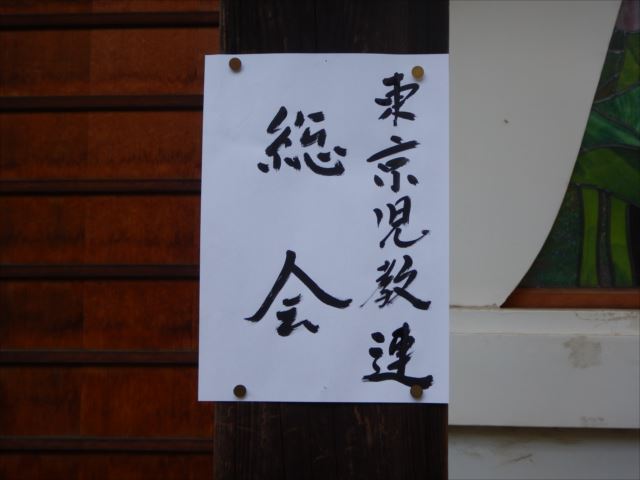 東京児教連
総会